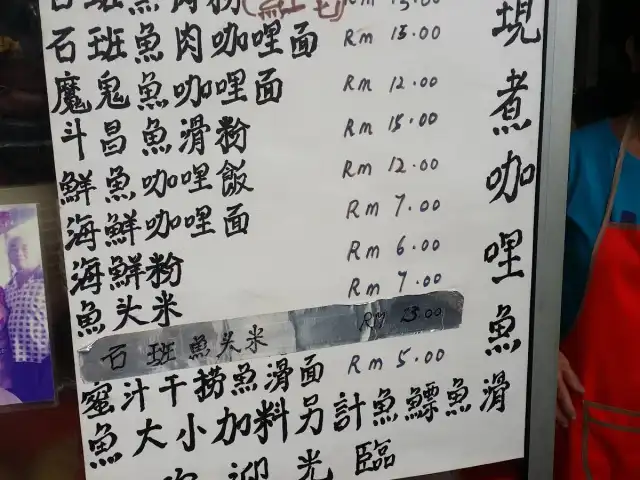 石班魚肉咖哩面 Rm 13.00
魔鬼魚咖哩面 Rm 12.00
斗昌魚滑粉 Rm 15.00
鮮魚咖哩飯 Rm 12.00
海鮮咖哩面 Rm 7.00
海鮮粉 Rm 6.00
魚头米 Rm 7.00
石班魚头米 Rm 23.00
蜜汁干捞魚滑面 Rm 5.00
魚大小加料另計魚鰾魚滑
迎光臨
現煮咖哩魚